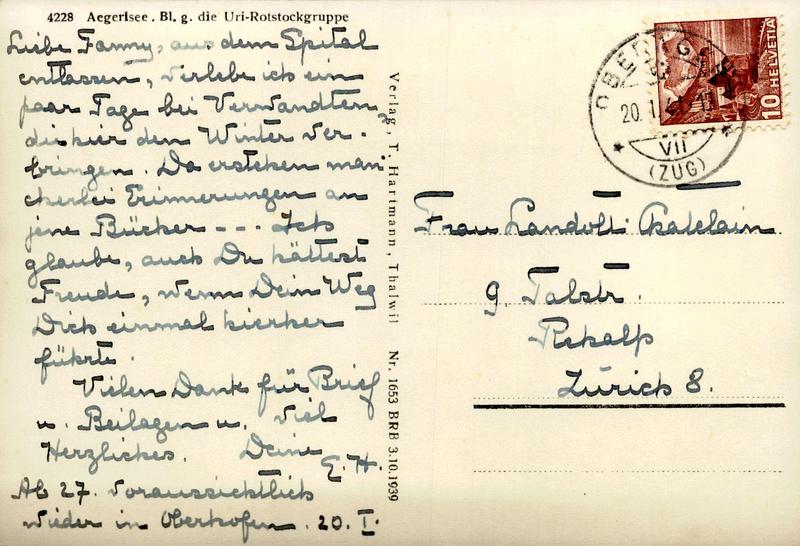 4228 Aegerisee. Bl. g. die Uri-Rotstockgruppe
Liebe Fanny, aus dem Spital
entlassen, verlebe ich ein
paar Tage bei Verwandten,
die hier den Winter ver-
bringen. Da erstehen man
cherlei Erinnerungen an
jene Bücher --- Ich
glaube, auch Du hättest
Freude, wenn Dein Weg
Dich einmal hierher
führte.
Vielen Dank für Brief
u. Beilagen u. viel
Herzliches. Deine
E. H.
Ab 27. voraussichtlich
wieder in Oberhofen. 20. I.
Verlag, T. Hartmann, Thalwil Nr. 1653 BRB 3.10.1939
20. I.
VII
(ZUG)
10 HELVETIA
Frau Landolt-Chatelain
9. Talstr.
Rehalp
Zürich 8.